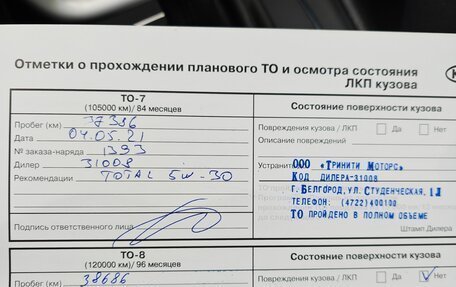 Отметки о прохождении планового ТО и осмотра состояния
ЛКП кузова
ТО-7
(105000 км)/ 84 месяцев
Пробег (км) 37336
Дата 04.05.21
№ заказа-наряда 1393
Дилер 31008
Рекомендации TOTAL 5W-30
Подпись ответственного лица
Состояние поверхности кузова
Повреждения кузова / ЛКП Да Нет
Описание повреждений
Устранить
ООО «Тринити Моторс»
Код дилера-31008
г. Белгород, ул. Студенческая, 1Л
телефон: (4722)400100
ТО пройдено в полном объеме
Штамп Дилера
ТО-8
(120000 км)/ 96 месяцев
Пробег (км) 38686
Состояние поверхности кузова
Повреждения кузова / ЛКП Да Нет